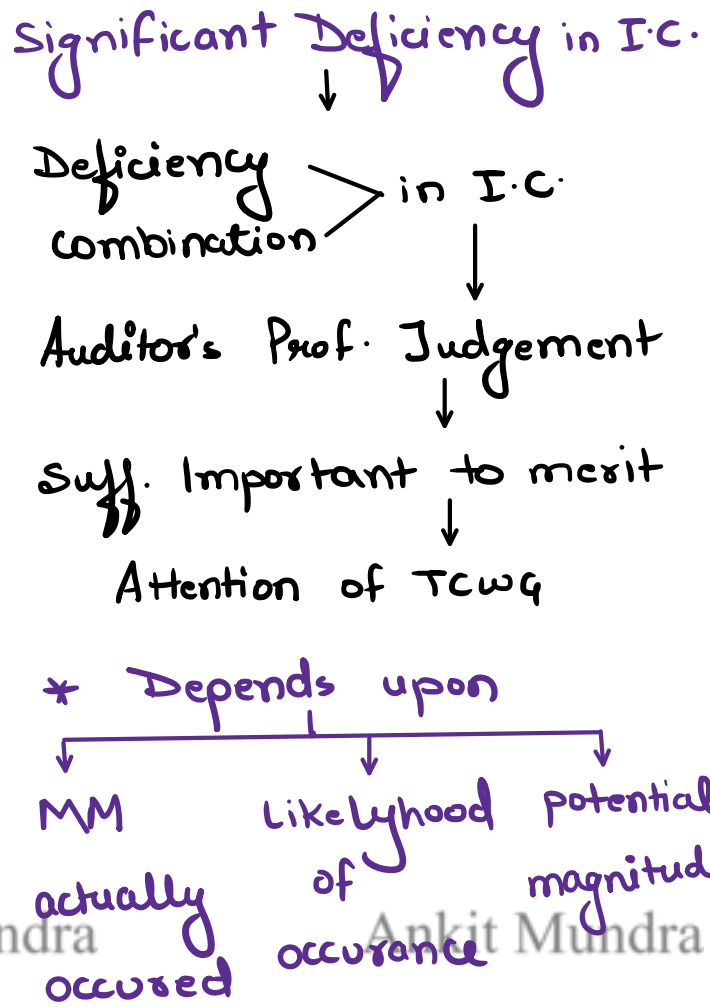 Significant Deficiency in I.C.
Deficiency
combination
in I.C.
Auditor's Prof. Judgement
Suff. Important to merit
Attention of TCWG
* Depends upon
MM
actually
occured
Likelyhood
of
occurance
potential
magnitud
ndra
Ankit Mundra